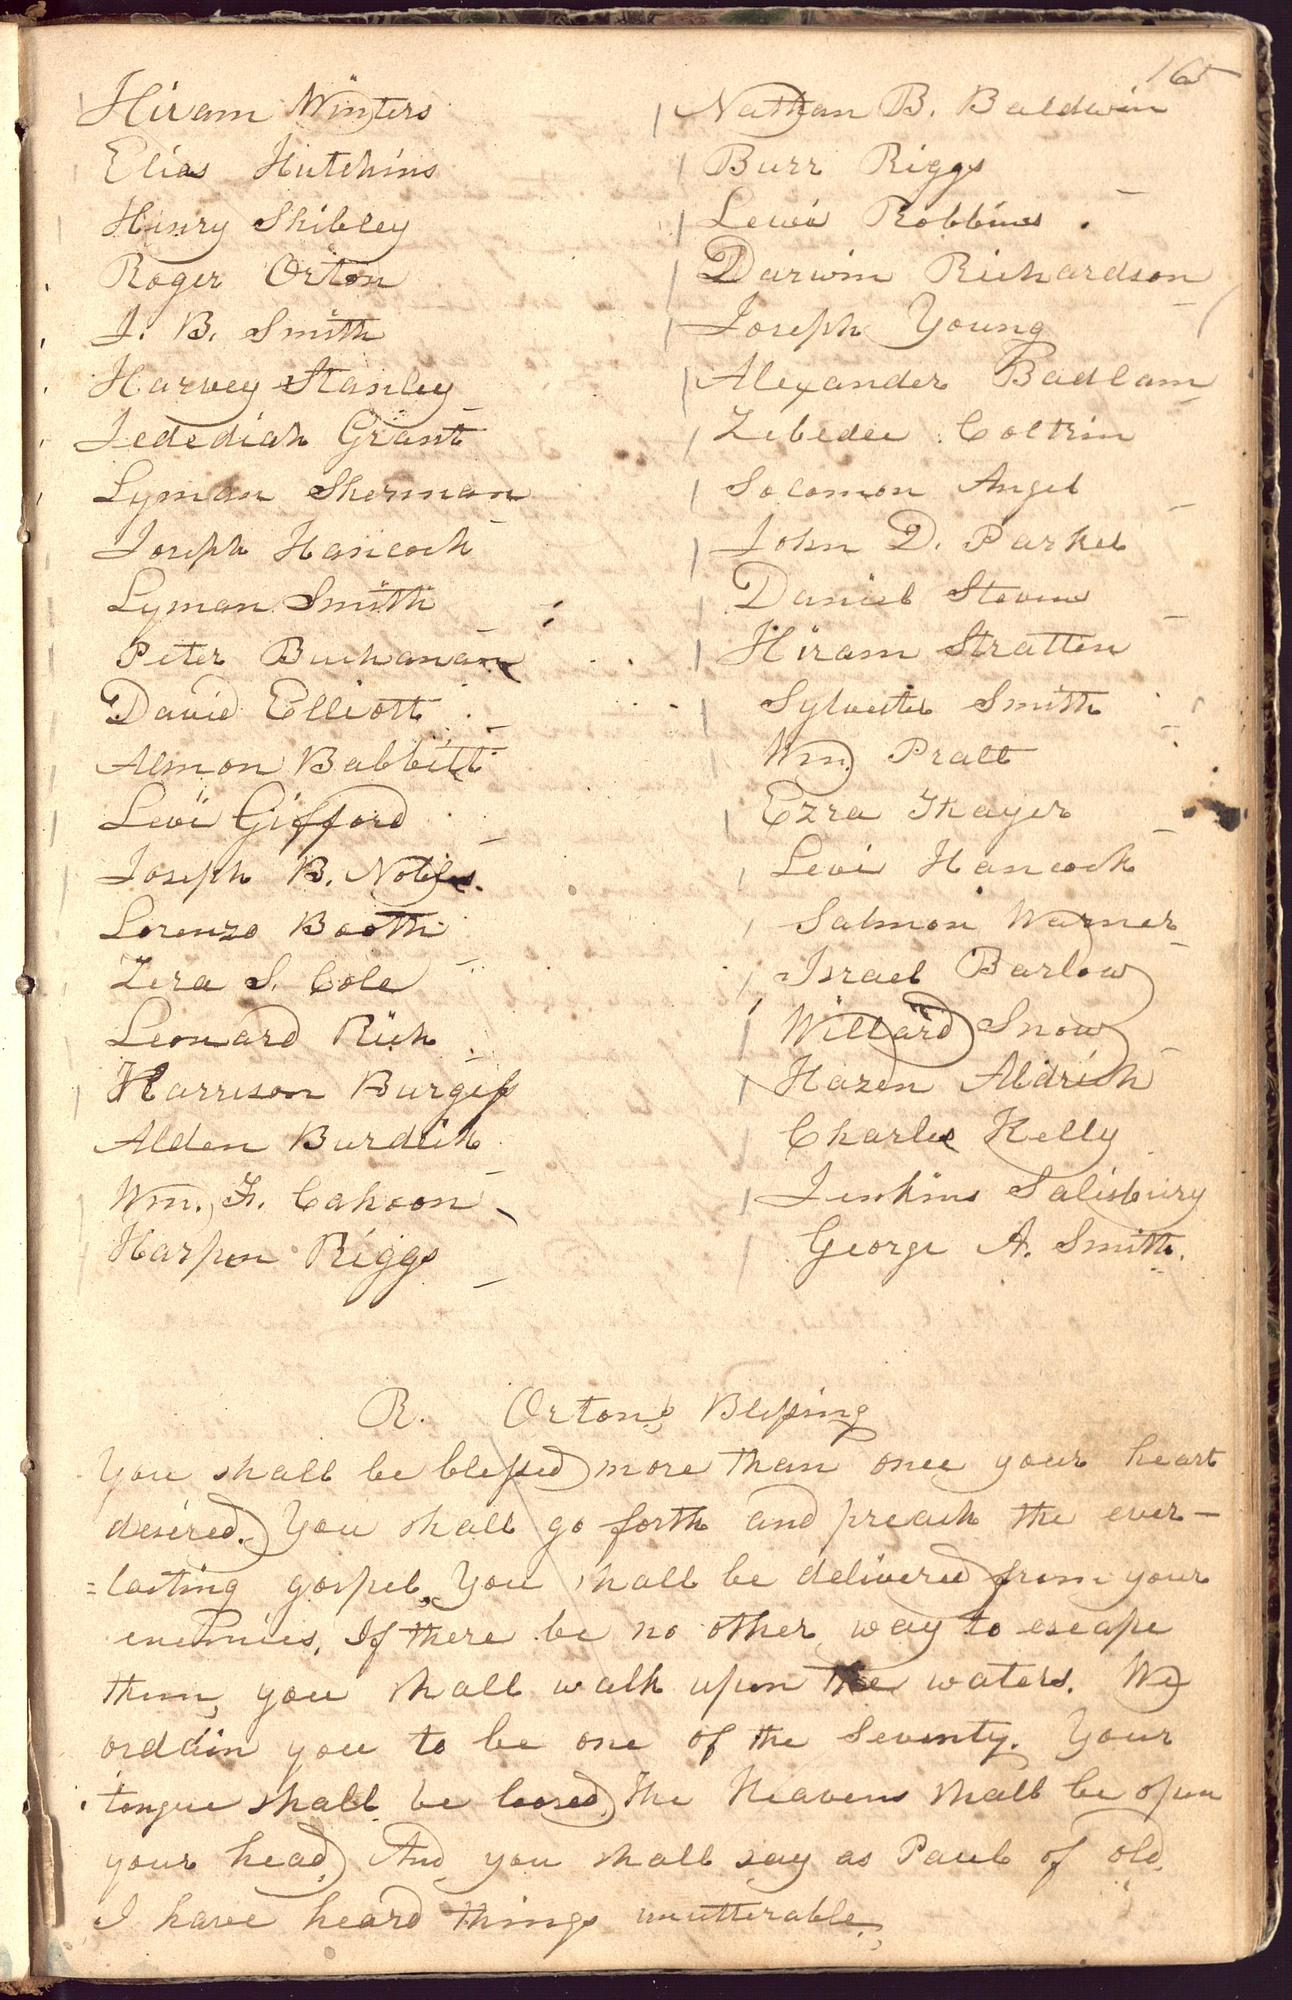 165
Hiram Winters
Elias Hutchins
Henry Shibley
Roger Orton
J. B. Smith
Harvey Stanley
Jedediah Grant
Lyman Sherman
Joseph Hancock
Lyman Smith
Peter Buchanan
David Elliott
Almon Babbitt
Levi Gifford
Joseph B. Nobles.
Lorenzo Booth
Zera S. Cole
Leonard Rich
Harrison Burgess
Alden Burdick
Wm. F. Cahoon
Harpin Riggs
Nathan B. Baldwin
Burr Riggs
Lewis Robbins
Darwin Richardson
Joseph Young
Alexander Badlam
Zebedee Coltrin
Solomon Angel
John D. Parker
Daniel Stevens
Hiram Stratten
Sylvester Smith
Wm. Pratt
Ezra Thayer
Levi Hancock
Salmon Warner
Israel Barlow
Willard Snow
Hazen Aldrich
Charles Kelly
Jenkins Salisbury
George A. Smith.
R. Orton's Blessing
You shall be blessed more than once your heart
desired. You shall go forth and preach the ever-
=lasting gospel, You shall be delivered from your
enemies, If there be no other way to escape
them, you shall walk upon the waters. We
ordain you to be one of the Seventy. Your
tongue shall be loosed, The Heavens shall be open
your head, And you shall say as Paul of old,
I have heard things unutterable,